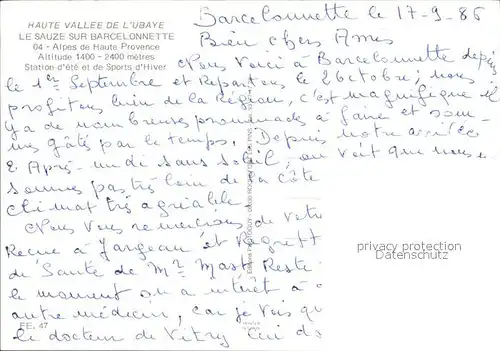 HAUTE VALLEE DE L'UBAYE
LE SAUZE SUR BARCELONNETTE
04 - Alpes de Haute Provence
Altitude 1400 - 2400 mètres
Station d'été et de Sports d'Hiver
Barcelonnette le 17-9-86
Bien chers Amis
Nous Voici à Barcelonnette depuis
le 1er Septembre et Repartons le 2 Octobre; nous
profitons bien de la Région, c'est magnifique il
y a de nombreuses promenades à faire et som-
mes gâtés par le temps. Depuis notre arrivée
2 Après-midi sans soleil, on voit que nous
sommes pas très loin de la côte
climat très agréable
Nous Vous remercions de votre
à Jargeau et
de Santé de Mr
le moment on a intérêt à
autre médecin, car je vois qu
le docteur de Vitry lui do
privacy protection
DELCAMPE.NET
EE. 47